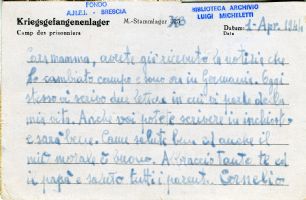 FONDO
A.N.E.I. - BRESCIA
BIBLIOTECA ARCHIVIO
LUIGI MICHELETTI
Kriegsgefangenenlager
Camp des prisonniers
M.-Stammlager
Datum: 1-Apr. 1944
Date
Cara mamma, avrete già ricevuto le notizie che
ho cambiato campo e sono ora in Germania. Oggi
stesso vi scrivo due lettere in cui vi parlo della
mia vita. Anche voi potete scrivere in inchiostro
e sarà bene. Come salute bene ed anche il
mio morale è buono. Abbraccio tanto te ed
il papà e saluto tutti i parenti. Cornelio